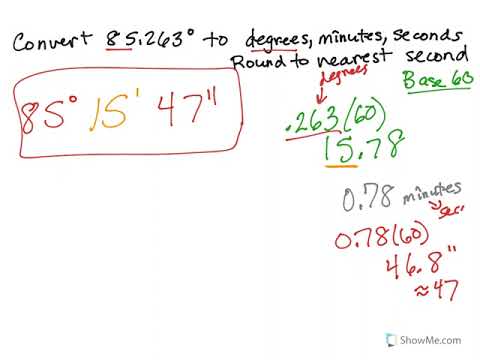 Convert 85.263° to degrees, minutes, seconds
Round to nearest second
degrees
Base 60
85° 15' 47"
.263(60)
15.78
0.78 minutes
sec
0.78(60)
46.8"
≈47
ShowMe.com